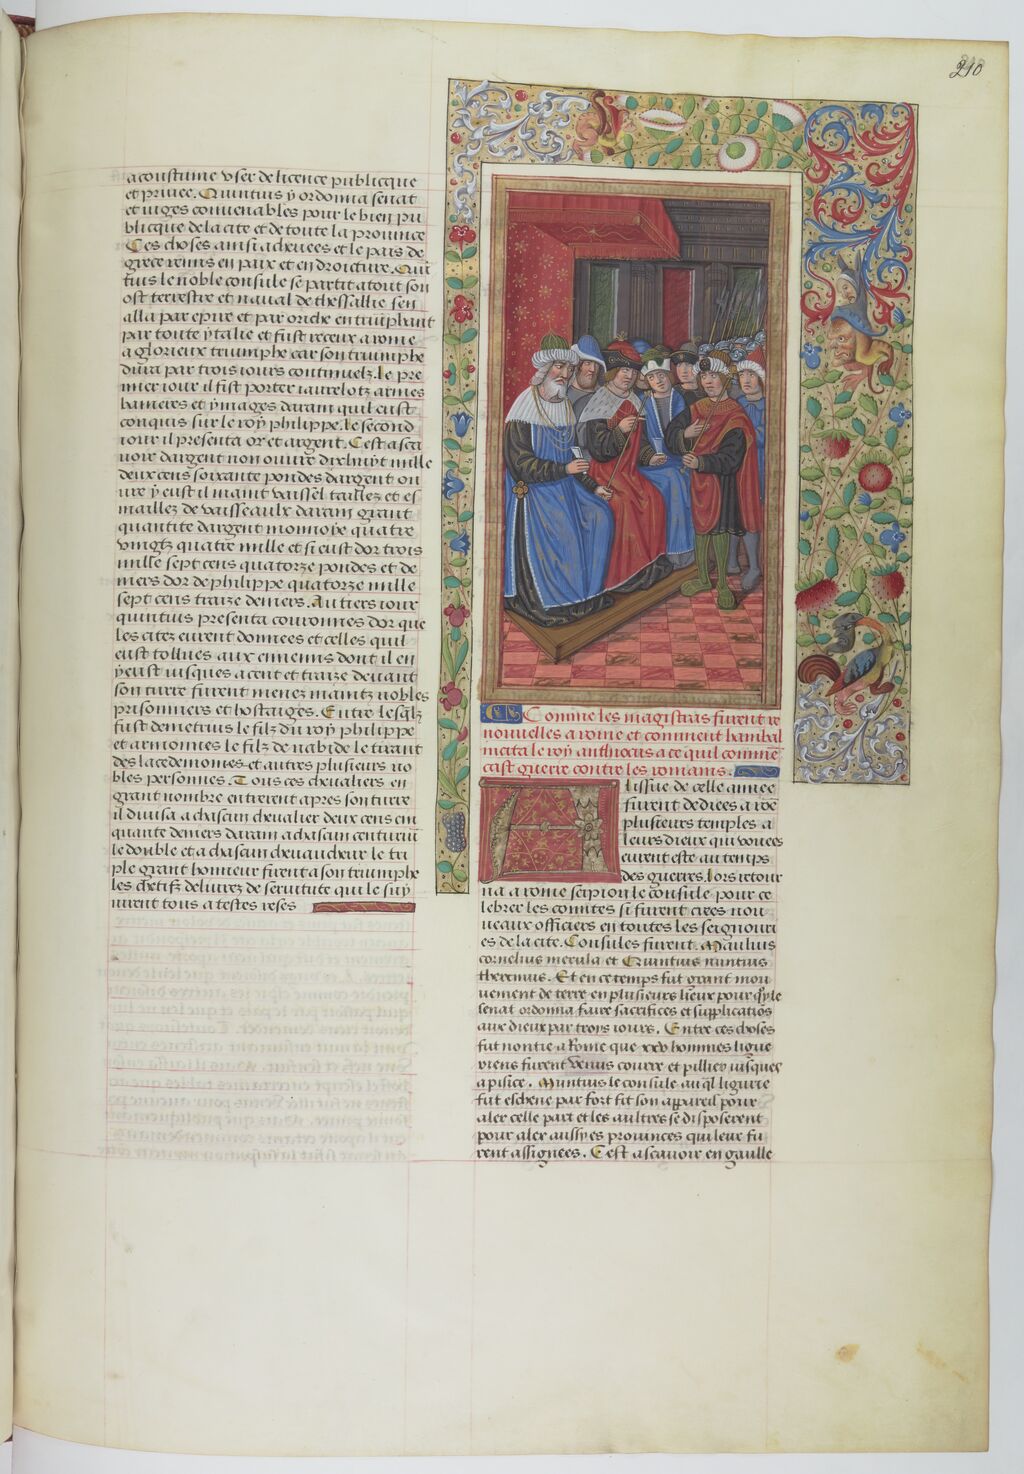 210
acoustume vser de licence publicque
et privee. Quintius y ordonna senat
et iuges convenables pour le bien pu
blicque de la cite et de toute la province
Ces choses ainsi achevees et le pais de
grece remis en paix et en droicture. Quin
tius le noble consule se partit a tout son
ost terrestre et naval de thessallie sen
alla par epire et par oriche en triumphant
par toute ytalie et fust receux a rome
a glorieux triumphe car son triumphe
dura par trois iours continuelz. Le pre
mier iour il fist porter iavelotz armes
banieres et ymages darain quil eust
conquis sur le roy philippe. Le second
iour il presenta or et argent. Cest asca
voir dargent non ouvre dixhuyt mille
deux cens soixante pondes dargent ou
vre y eust il maint vaissel taillez et es
maillez de vaisseaulx darain grant
quantite dargent monnoye quatre
vingtz quatre mille et si eust dor trois
mille sept cens quatorze pondes et de
niers dor de philippe quatorze mille
sept cens traize deniers. Au tiers iour
quintius presenta couronnes dor que
les citez eurent donnees et celles quil
eust tollues aux ennemis dont il en
y eust iusques a cent et traize devant
son curre furent menez maintz nobles
prisonniers et hostaiges. Entre lesqlz
fust demetrius le filz du roy philippe
et armonnes le filz de nabide le tirant
des lacedemones et autres plusieurs no
bles personnes. Tous ces chevaliers en
grant nombre entrerent apres son curre
il divisa a chascun chevalier deux cens cin
quante deniers darain a chascun centurion
le double et a chascun chevaucheur le tri
ple grant honneur firent a son triumphe
les chetifz delivrez de servitute qui le suy
virent tous a testes reses
Comme les magistras furent re
nouvelles a rome et comment hannibal
incita le roy anthiocus a ce quil commē
cast guerre contre les romains.
A lissue de celle annee
furent dediees a rōe
plusieurs temples a
leurs dieux qui vouees
eurent este au temps
des guerres. Lors retour
na a rome scipion le consule pour ce
lebrer les comites si furent crees nou
veaux officiers en toutes les seignouri
es de la cite. Consules furent. Maulius
cornelius merula et Quintius minutius
thermus. Et en ce temps fut grant mou
vement de terre en plusieurs lieux pour qͥ le
senat ordonna faire sacrifices et supplicatiōs
aux dieux par trois iours. Entre ces choses
fut noncie a Rome que xxv hommes ligue
riens furent venus courre et pillier iusques
a pisice. Minutius le consule auql ligurie
fut escheue par sort fit son appareil pour
aler celle part et les aultres se disposerent
pour aler aussy es provinces qui leur fu
rent assignees. Cest ascavoir en gaulle